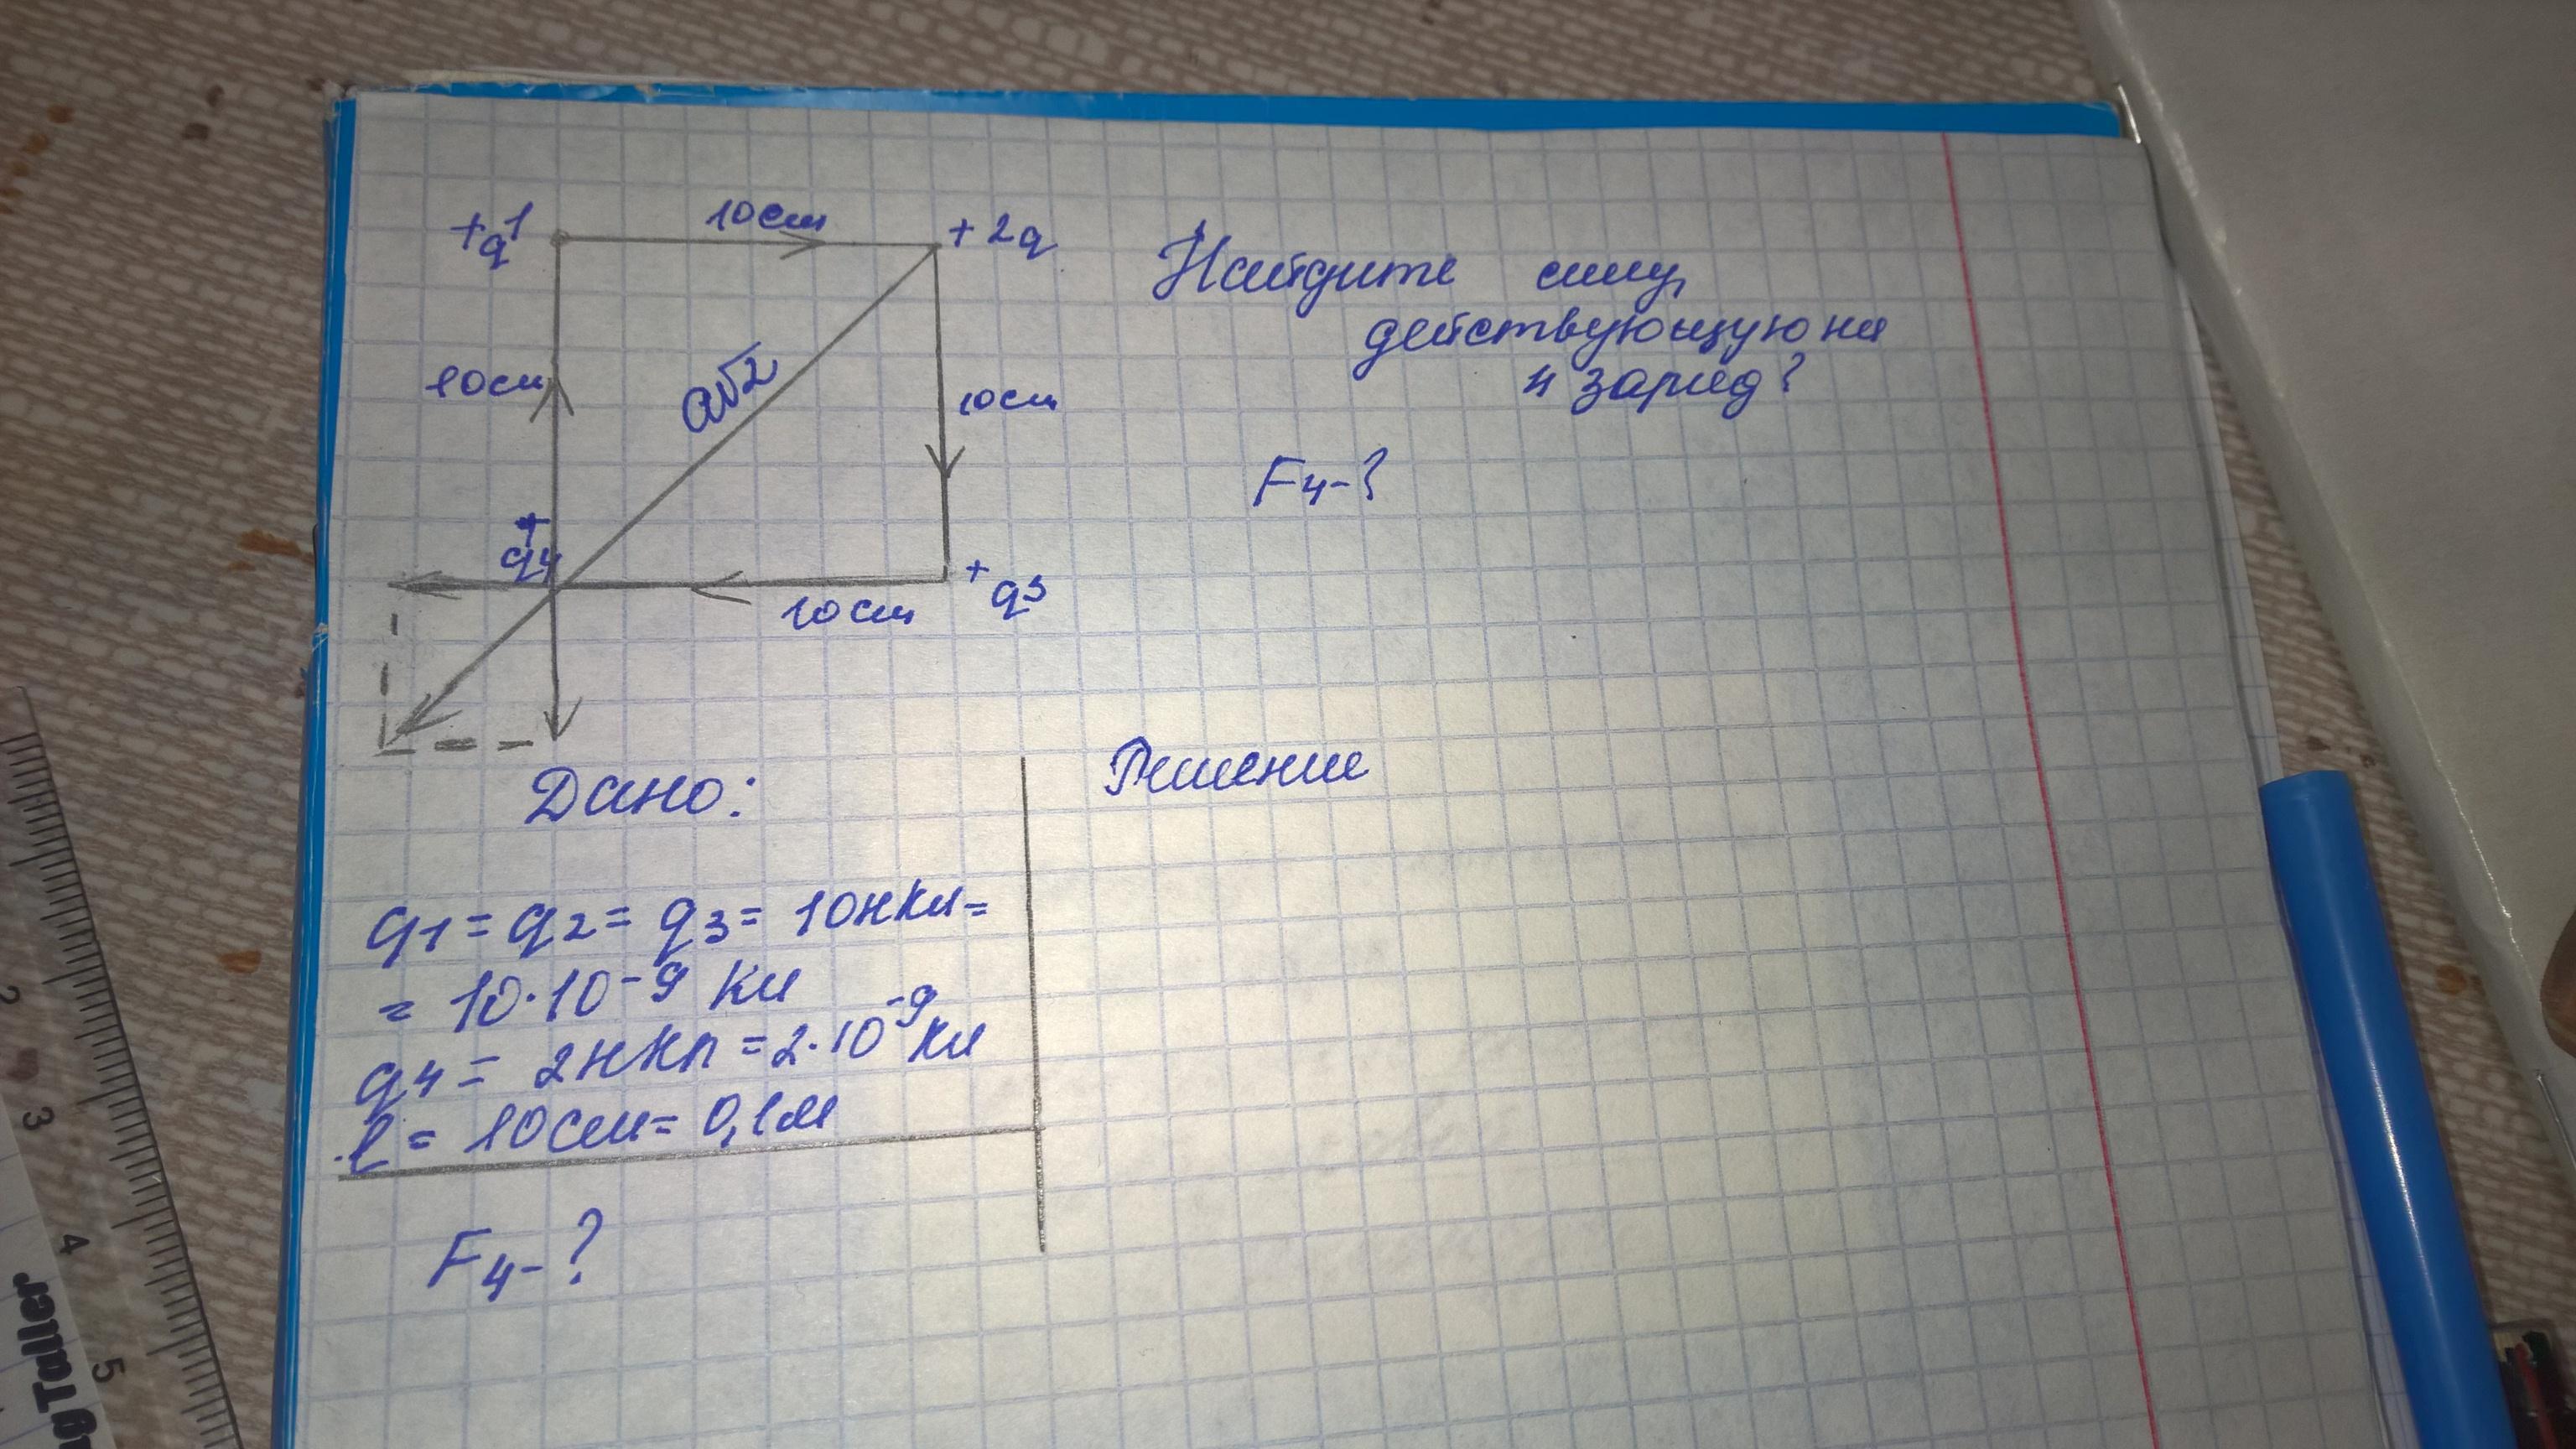 +q1
10см
+2q
10см
a√2
10см
+
q4
+
q3
10см
Найдите силу,
действующую на
4 заряд?
F4-?
Дано:
Решение
q1=q2=q3=10нКл=
=10·10⁻⁹ Кл
q4= 2нКл=2·10⁻⁹Кл
l= 10см=0,1м
F4-?
2
3
4
5
Taller